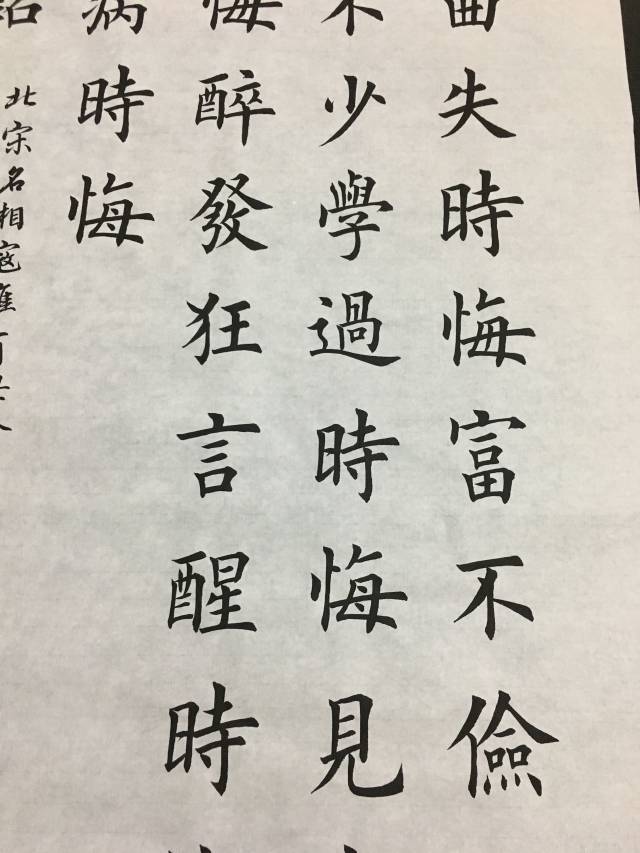 曲失時悔富不儉
不少學過時悔見
悔醉發狂言醒時
病時悔
北宋名相寇